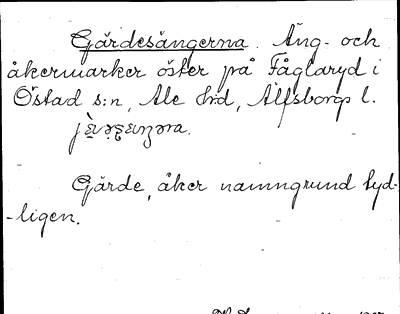 Gärdesängerna. Äng- och
åkermarker öster på Fåglaryd i
Östad s:n, Ale hd, Älfsborgs l.
Gärde, åker namngrund tyd-
-ligen.